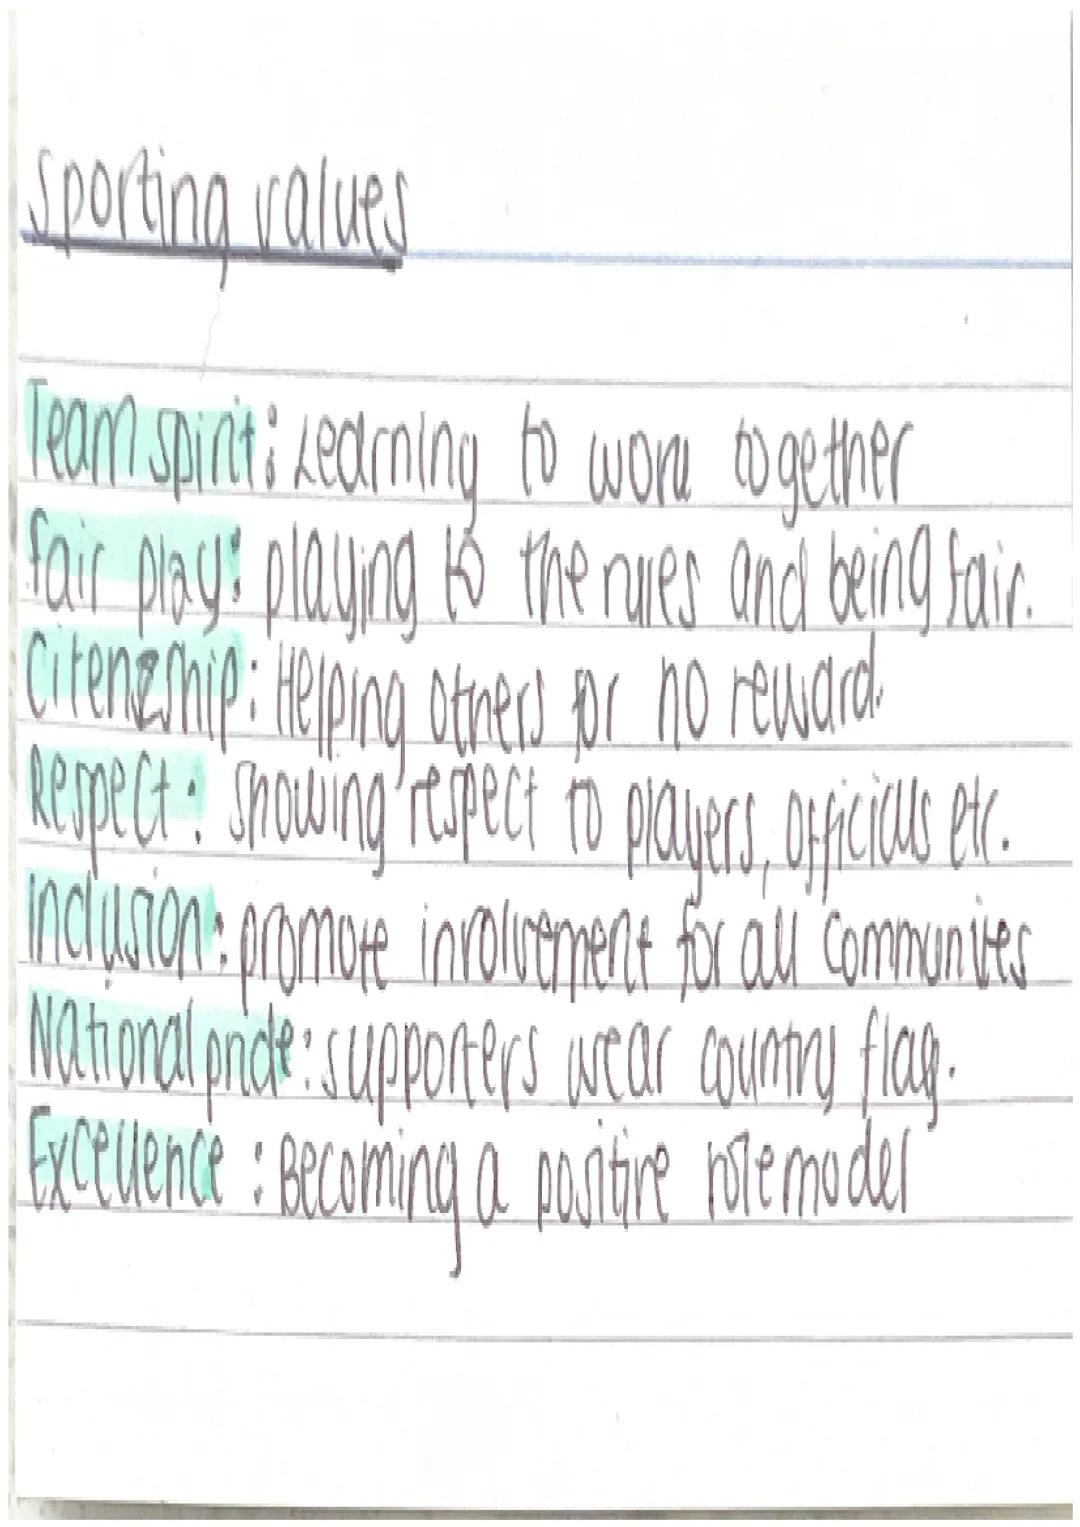 sporting values
Team spirit: Learning to work together
fair play: playing to the rules and being fair.
Citenzship: Helping others for no reward.
Respect: showing respect to players, officials etc.
inclusion: promote involvement for all communites
National pride: supporters wear country flag.
Excellence: Becoming a positive role model